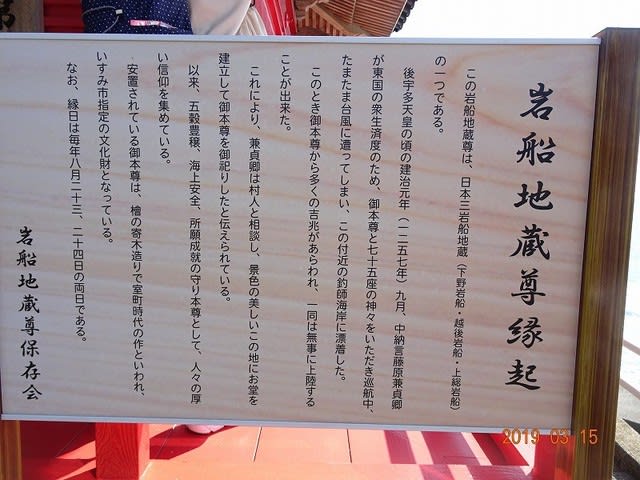 岩船地蔵尊縁起
この岩船地蔵尊は、日本三岩船地蔵(下野岩船・越後岩船・上総岩船)
の一つである。
後宇多天皇の頃の建治元年(一二五七年)九月、中納言藤原兼貞卿
が東国の衆生済度のため、御本尊と七十五座の神々をいただき巡航中、
たまたま台風に遭ってしまい、この付近の釣師海岸に漂着した。
このとき御本尊から多くの吉兆があらわれ、一同は無事に上陸する
ことが出来た。
これにより、兼貞卿は村人と相談し、景色の美しいこの地にお堂を
建立して御本尊を御祀りしたと伝えられている。
以来、五穀豊穣、海上安全、所願成就の守り本尊として、人々の厚
い信仰を集めている。
安置されている御本尊は、檜の寄木造りで室町時代の作といわれ、
いすみ市指定の文化財となっている。
なお、縁日は毎年八月二十三、二十四日の両日である。
岩船地蔵尊保存会
2019 03 15